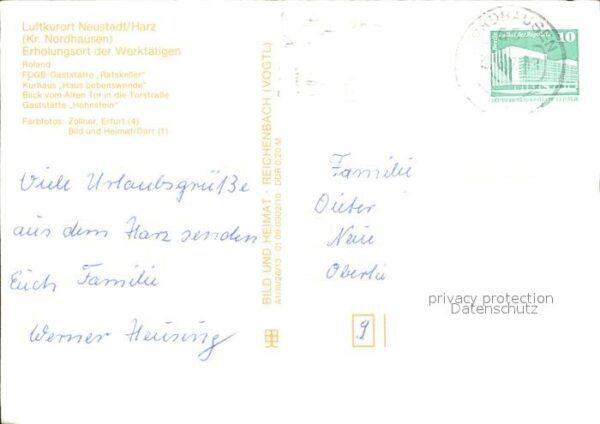 Luftkurort Neustadt/Harz
(Kr. Nordhausen)
Erholungsort der Werktätigen
Roland
FDGB-Gaststätte „Ratskeller“
Kurhaus „Haus Lebenswende“
Blick vom Alten Tor in die Torstraße
Gaststätte „Hohnstein“
Farbfotos: Zöllner, Erfurt (4)
Bild und Heimat/Darr (1)
Viele Urlaubsgrüße
aus dem Harz senden
Euch Familie
Werner Heising
BILD UND HEIMAT · REICHENBACH (VOGTL)
01 09 0302/10 DDR 0,20 M
NORDHAUSEN
10
Familie
Dieter
Oberlie
privacy protection
Datenschutz
9